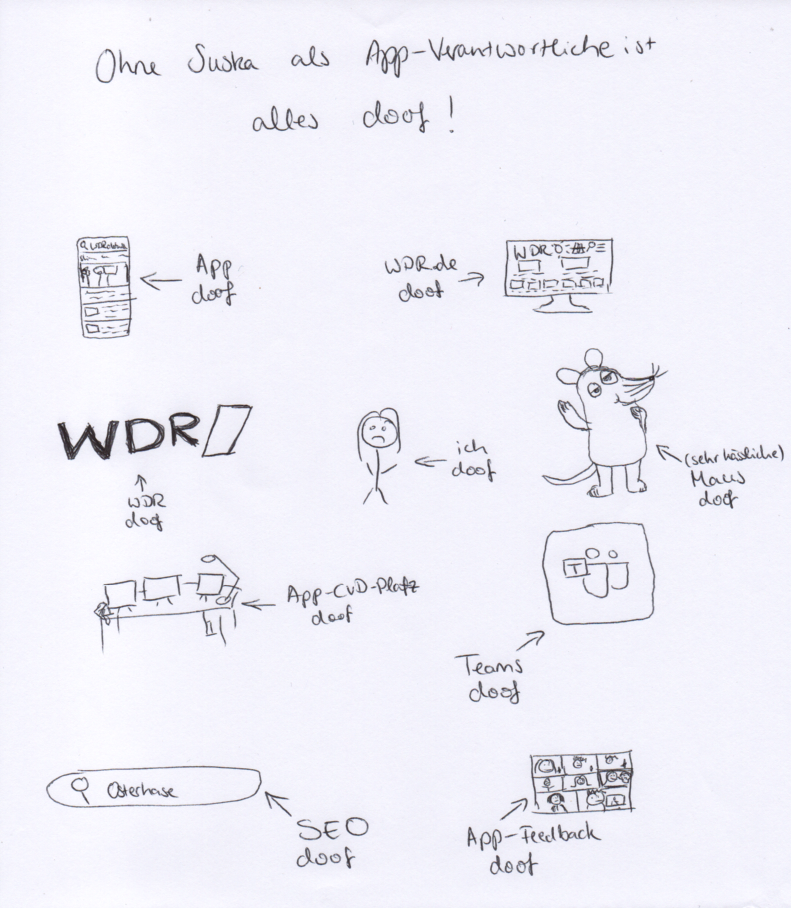 Ohne Suska als App-Verantwortliche ist
alles doof!
App
doof
WDR.de
doof
WDR
WDR
WDR
doof
ich
doof
(sehr hässliche)
Maus
doof
App-CvD-Platz
doof
T
Teams
doof
Osterhase
SEO
doof
App-Feedback
doof